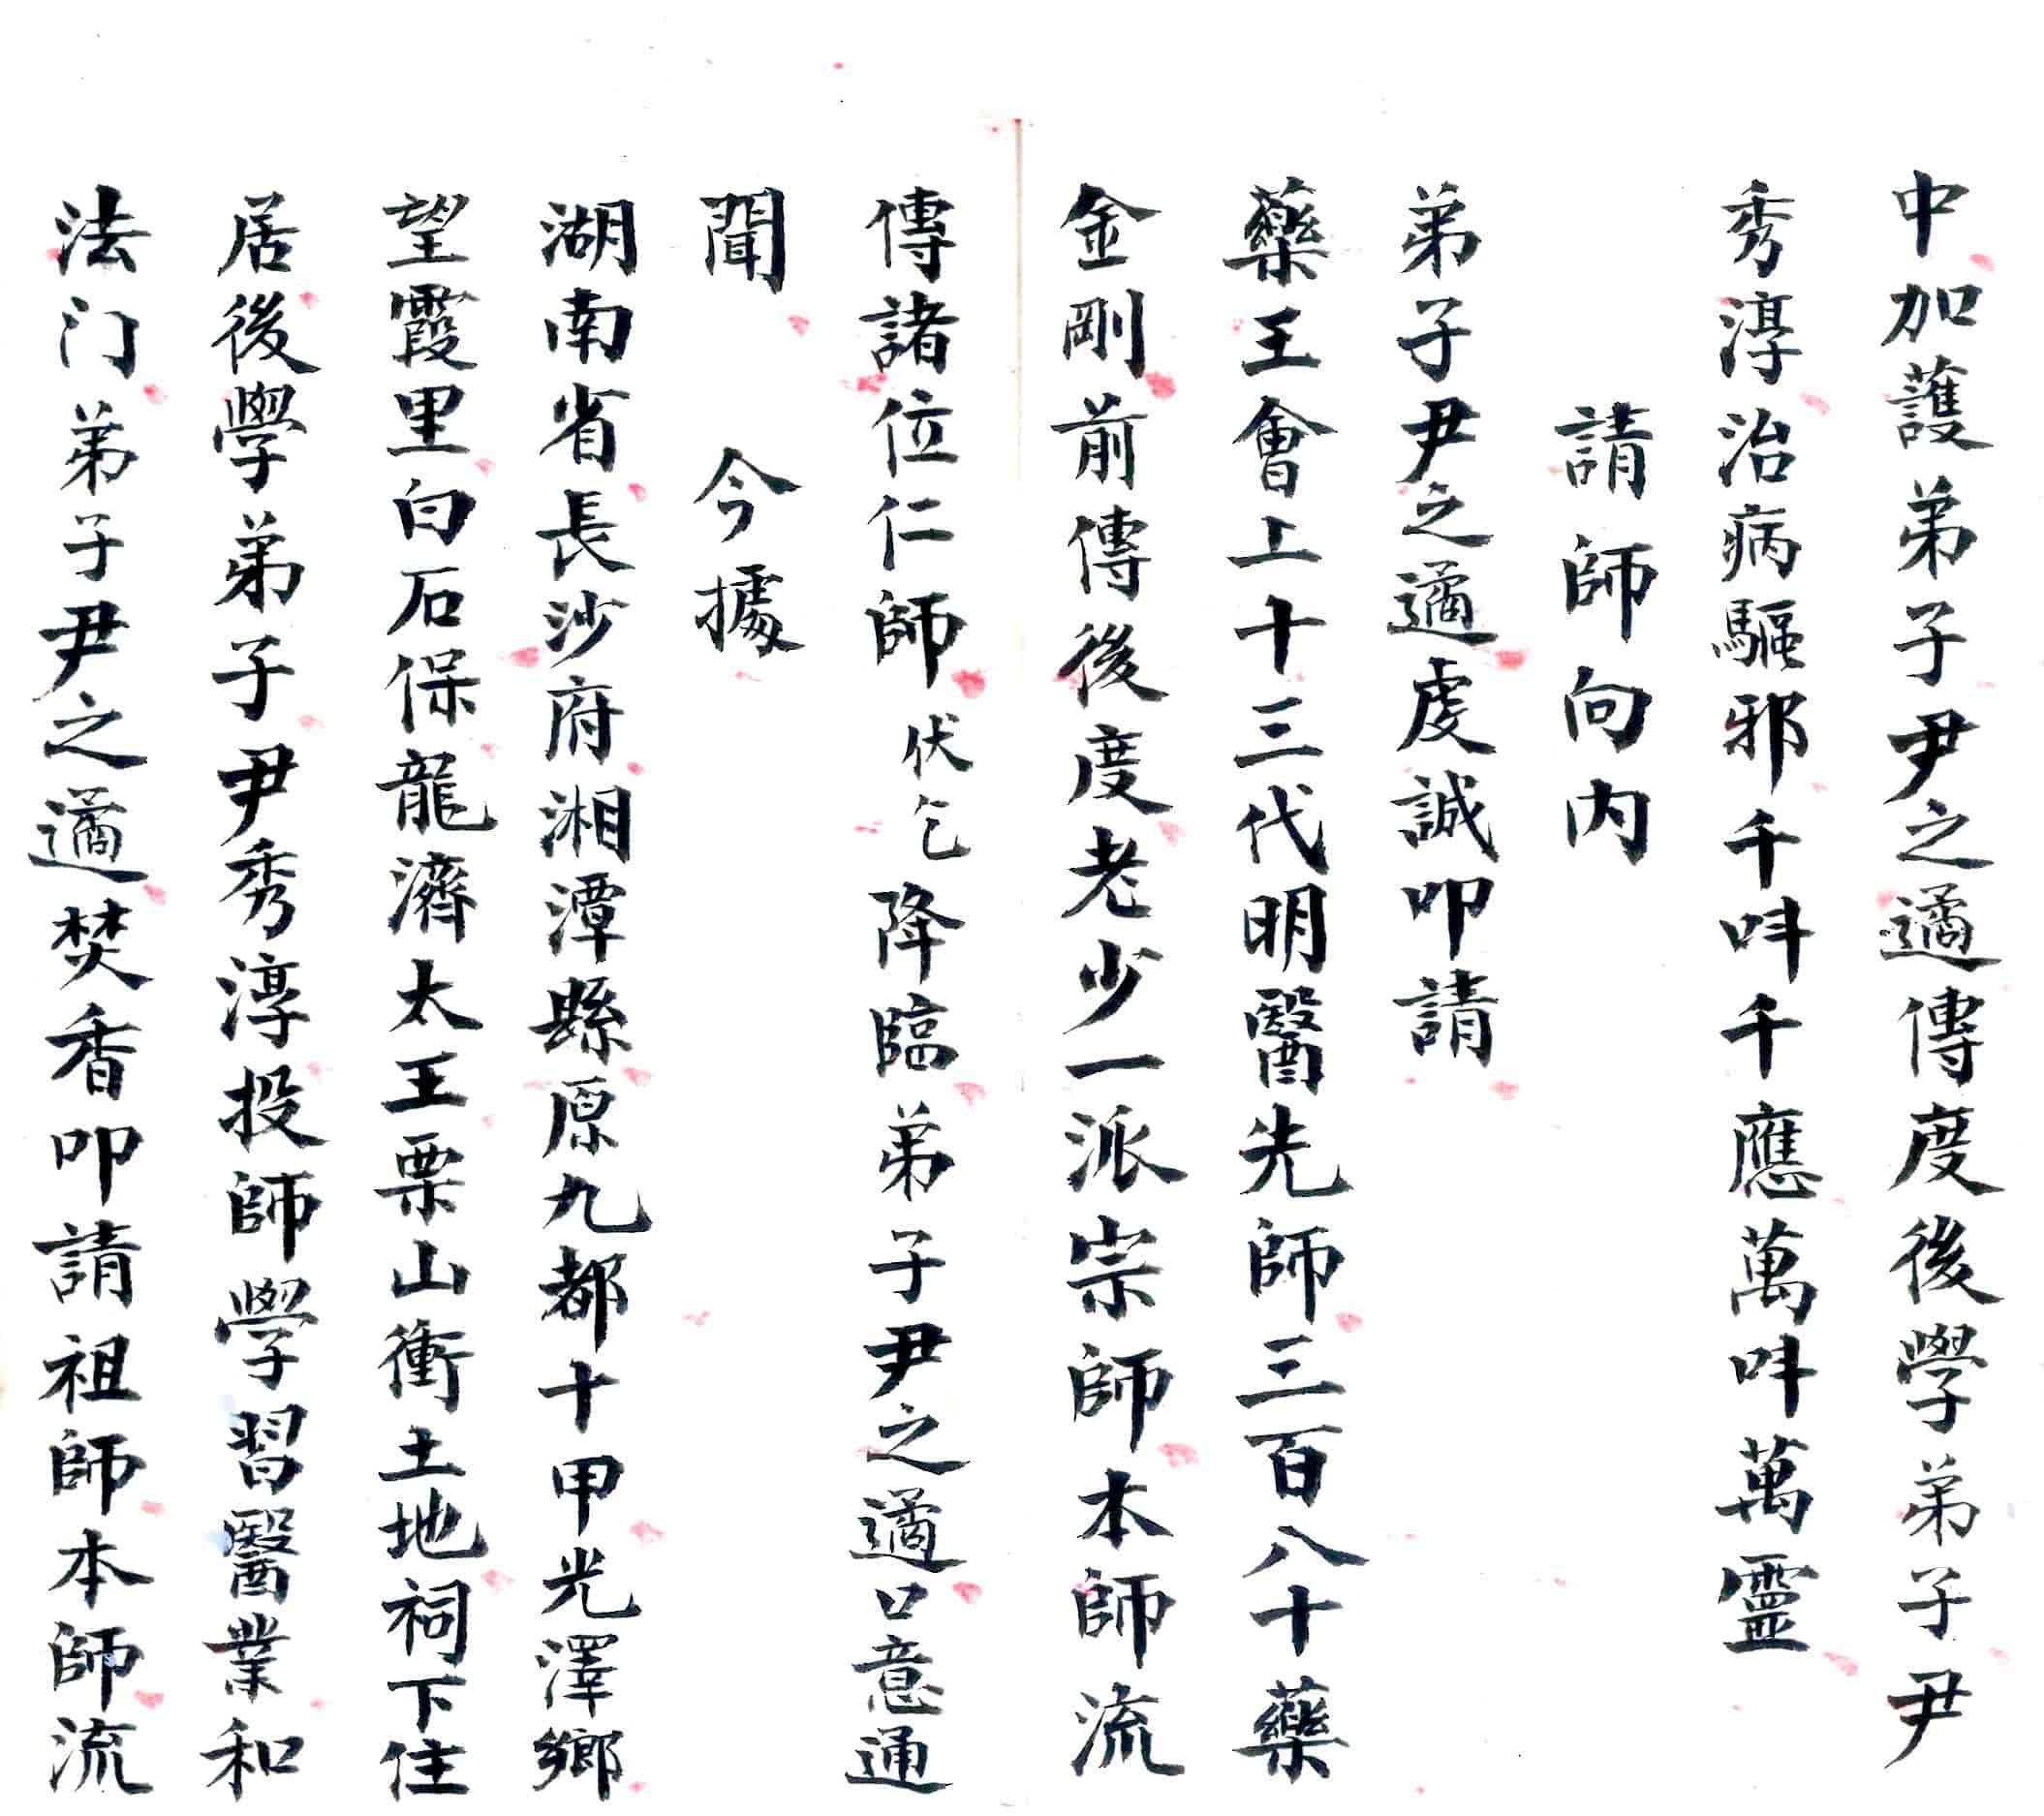 中加護弟子尹之遹傳度後學弟子尹
秀淳治病驅邪千呌千應萬呌萬靈
請師向内
弟子尹之遹虔誠叩請
藥王會上十三代明醫先師三百八十藥
金剛前傳後度老少一派宗師本師流
傳諸位仁師伏乞降臨弟子尹之遹口意通
聞　今據
湖南省長沙府湘潭縣原九都十甲光澤鄉
望霞里白石保龍濟太王栗山衝土地祠下住
居後學弟子尹秀淳投師學習醫業和
法门弟子尹之遹焚香叩請祖師本師流